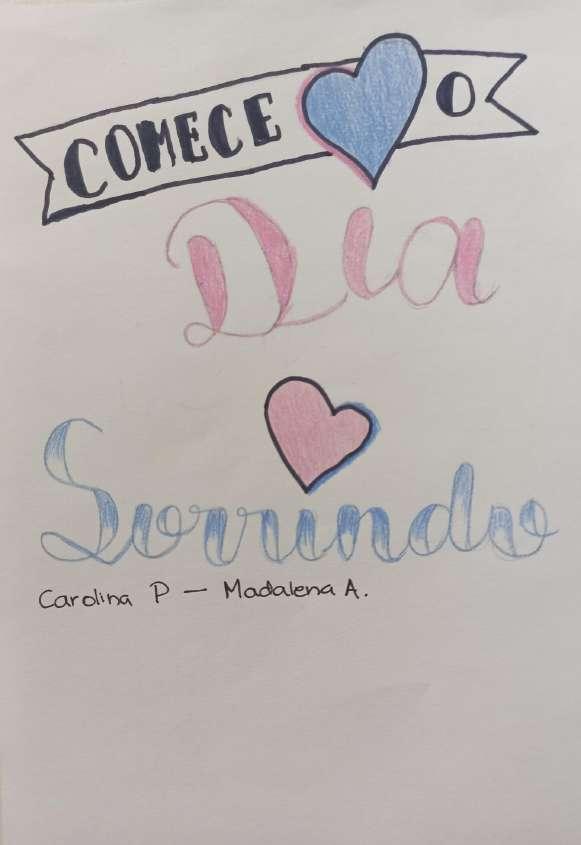 COMECE O
Dia
Sorrindo
Carolina P — Madalena A.